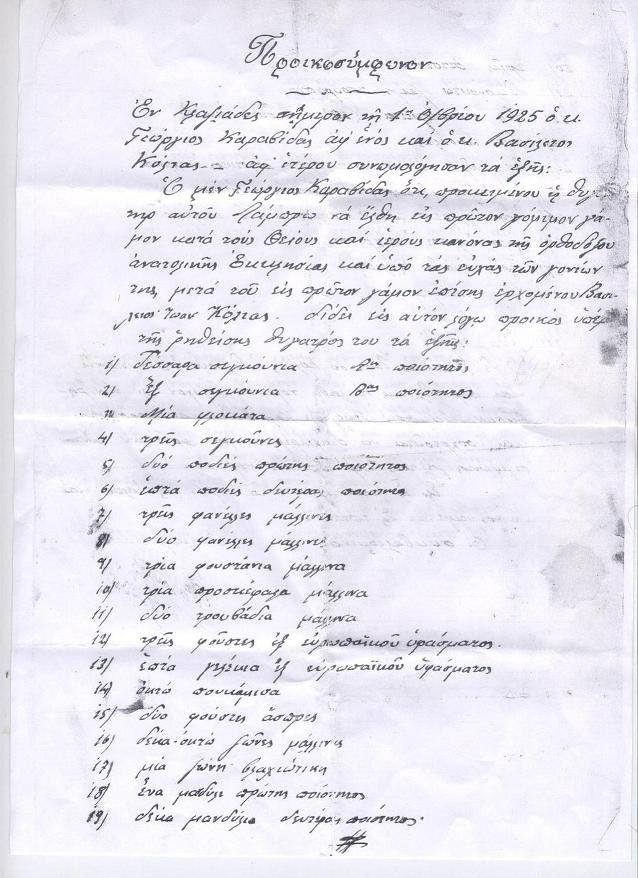 Προικοσύμφωνον
Ἐν Κλαψιάδες σήμερον τῇ 1ῃ 8βρίου 1925 ὁ κ.
Γεώργιος Καραβίδας ἀφ' ἑνός καί ὁ κ. Βασίλειος
Κόλιας ἀφ' ἑτέρου συνωμολόγησαν τά ἑξῆς:
Ὁ μέν Γεώργιος Καραβίδας ὅτι, προκειμένου ἡ θυγά-
τηρ αὐτοῦ Λάμπρω νά ἔλθῃ εἰς πρῶτον νόμιμον γά-
μον κατά τούς Θείους καί ἱερούς κανόνας τῆς ὀρθοδόξου
ἀνατολικῆς Ἐκκλησίας καί ὑπό τάς εὐχάς τῶν γονέων
της, μετά τοῦ εἰς πρῶτον γάμον ἐπίσης ἐρχομένου Βασι-
λείου Κόλιας. δίδει εἰς αὐτόν λόγῳ προικός ὑπέρ
τῆς ῥηθείσης θυγατρός του τά ἑξῆς:
1) Τέσσαρα σεγκούνια Αης ποιότητος
2) ἕξ σεγκούνια Βας ποιότητος
3) Μία φλοκάτα
4) τρεῖς σεγκούνες
5) δυό ποδιές πρώτης ποιότητος
6) ἑπτά ποδιές δευτέρας ποιότητος
7) τρεῖς φανέλες μάλλινες
8) δύο φανέλες μάλλινες
9) τρία φουστάνια μάλλινα
10) τρία προσκέφαλα μάλλινα
11) δύο τρουβάδια μάλλινα
12) τρεῖς φοῦστες ἐξ εὐρωπαϊκοῦ ὑφάσματος.
13) ἑπτά γελέκια ἐξ εὐρωπαϊκοῦ ὑφάσματος
14) ὀκτώ πουκάμισα
15) δύο φοῦστες ἄσπρες
16) δέκα-ὀκτώ ζῶνες μάλλινες
17) μία ζώνη βλαχιώτικη
18) ἕνα μαδύλι πρώτης ποιότητος
19) δέκα μανδύλια δευτέρας ποιότητος.